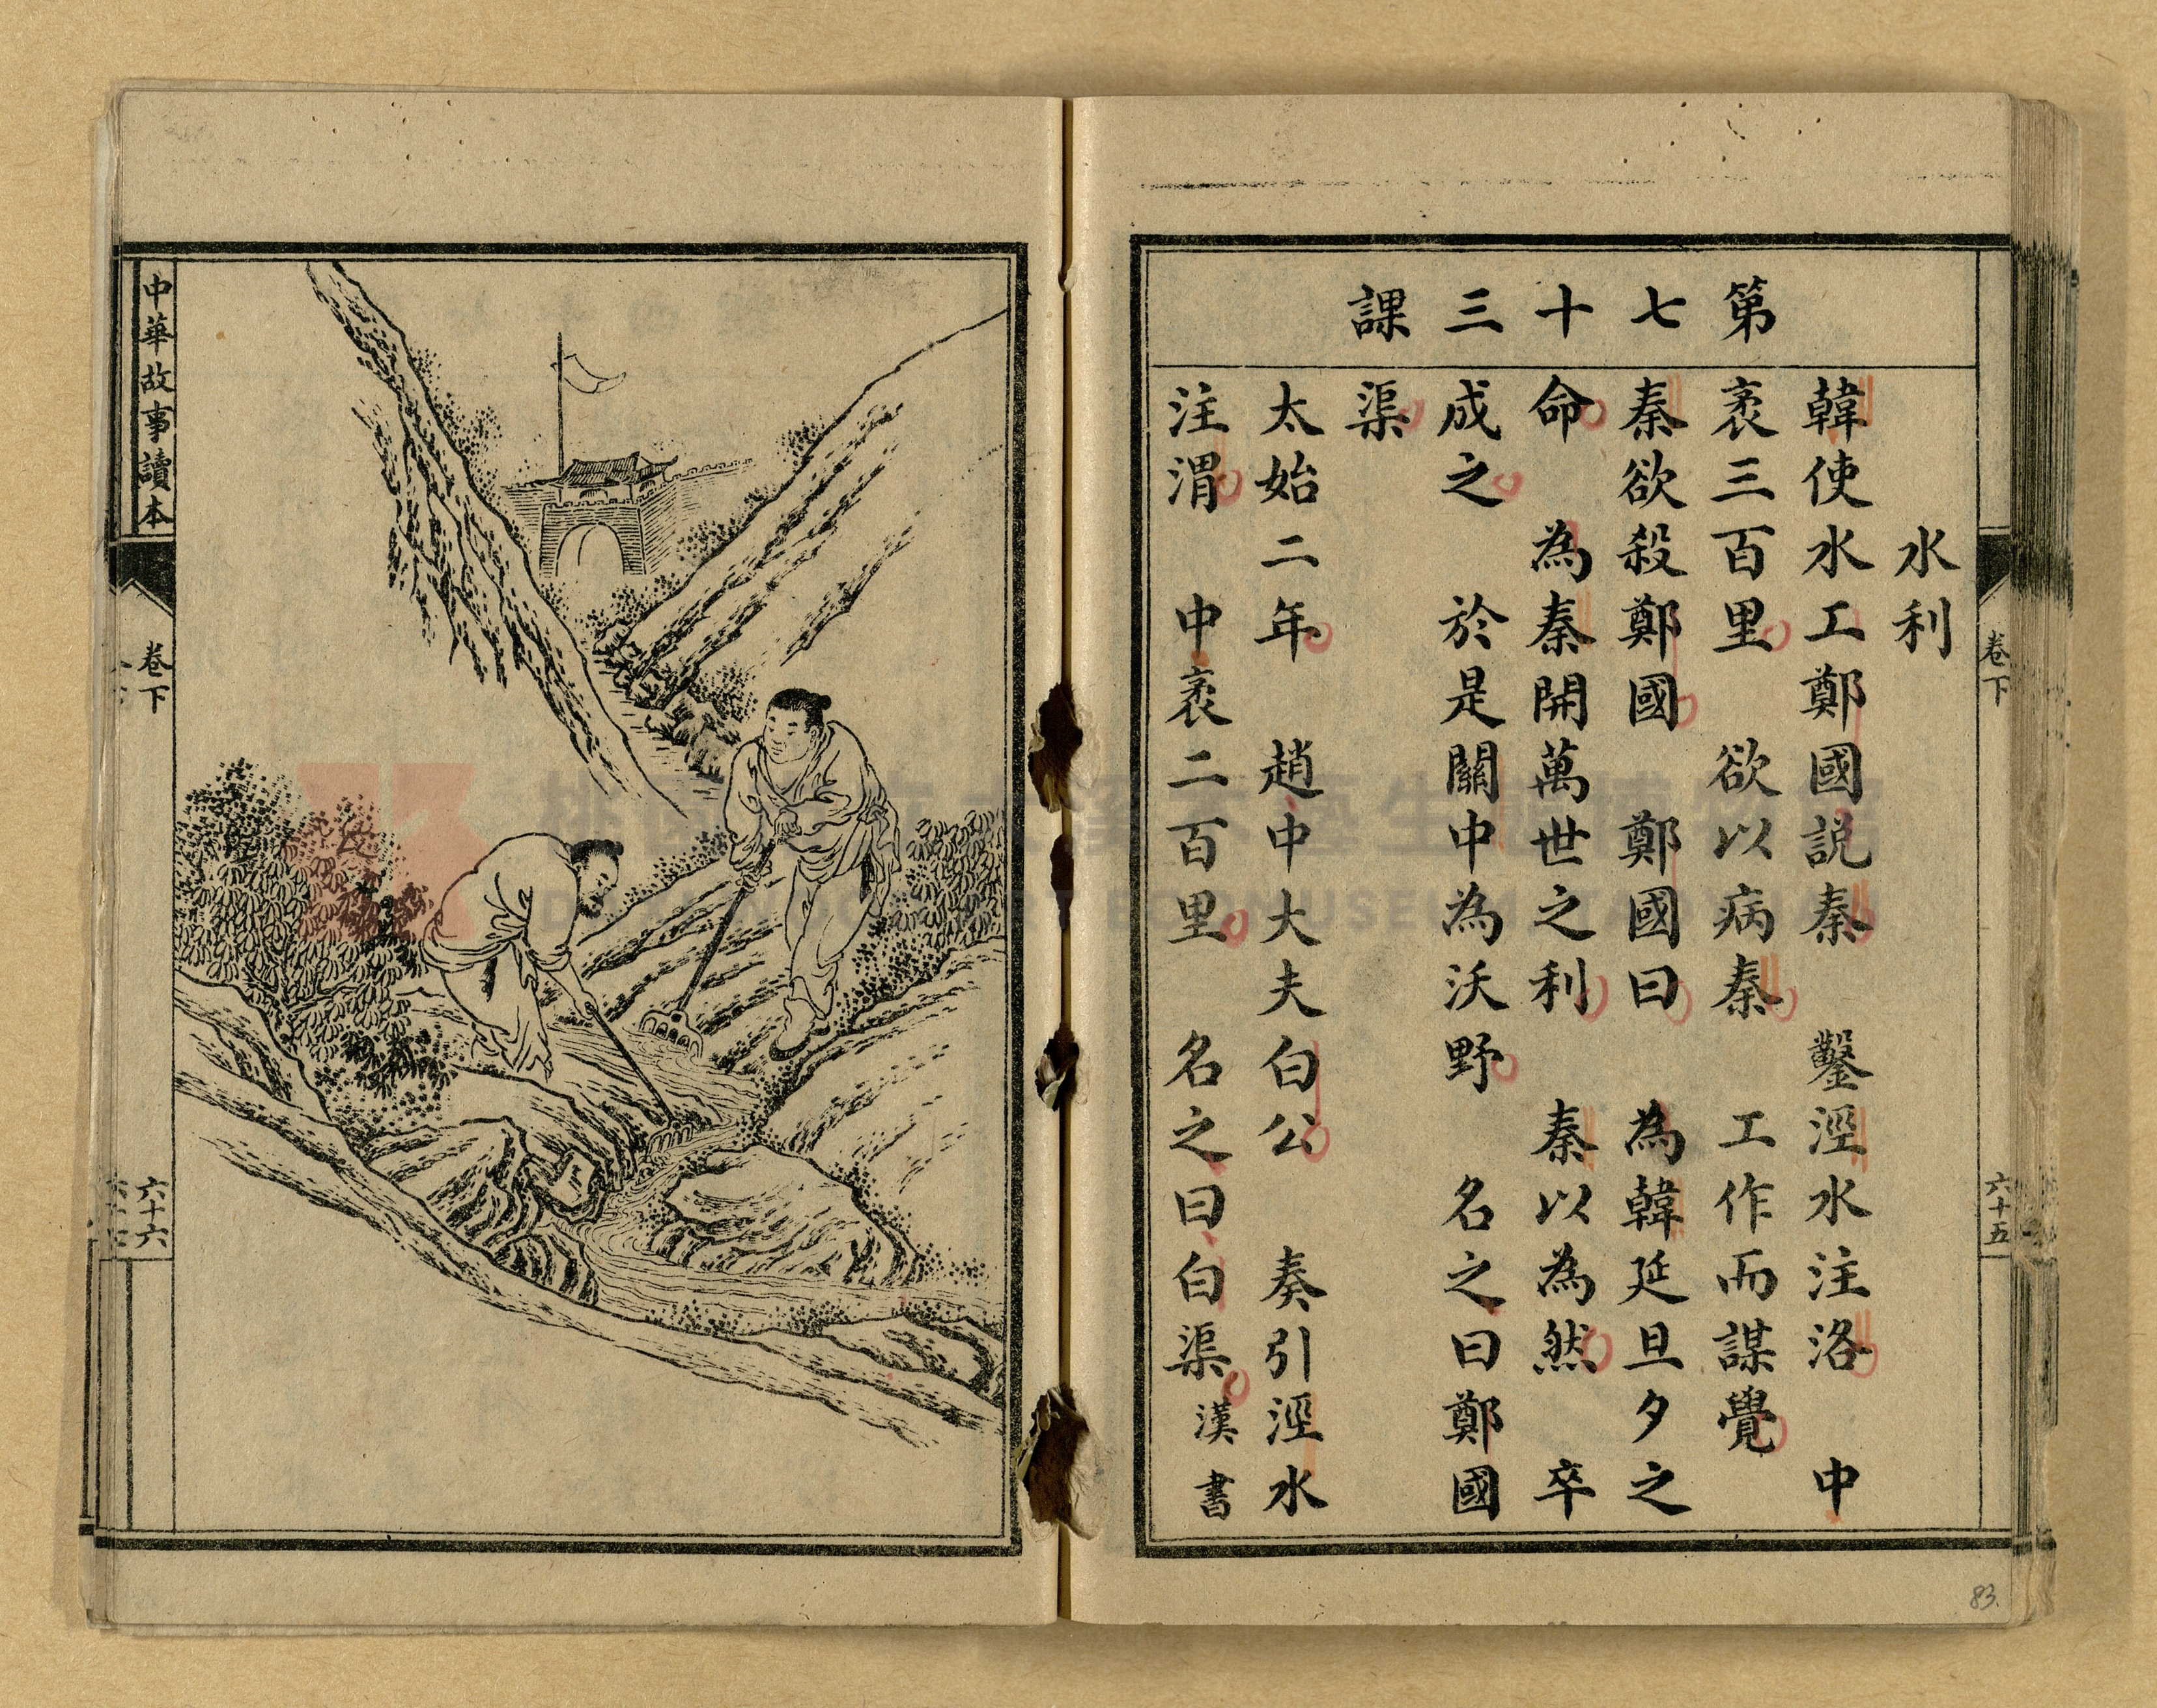 第七十三課
水利
韓使水工鄭國説秦 鑿涇水注洛 中
袤三百里 欲以病秦 工作而謀覺
秦欲殺鄭國 鄭國曰 為韓延旦夕之
命 為秦開萬世之利 秦以為然 卒
成之 於是關中為沃野 名之曰鄭國
渠
太始二年 趙中大夫白公 奏引涇水
注渭 中袤二百里 名之曰白渠 漢書
卷下
六十五
83.
中華故事讀本
卷下
六十六